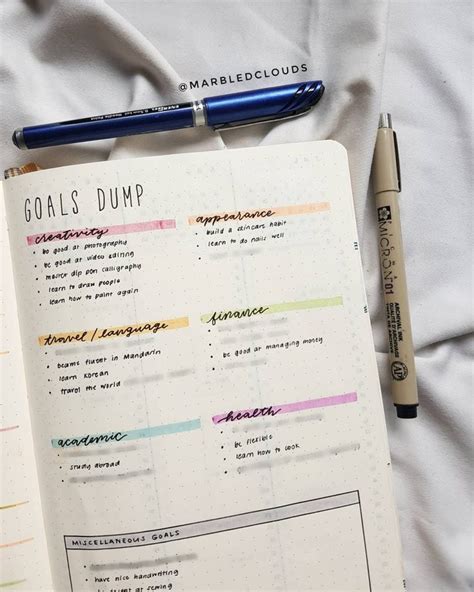 @MARBLEDCLOUDS
GOALS DUMP
creativity
• be good at photography
• be good at video editing
• master dip pen calligraphy
• learn to draw people
• learn how to paint again
appearance
• build a skincare habit
• learn to do nails well
travel / language
• became fluent in Mandarin
• learn Korean
• travel the world
finance
• be good at managing money
academic
• study abroad
health
• be flexible
• learn how to cook
MISCELLANEOUS GOALS
• have nice handwriting
at sewing
MICRON 01
ARCHIVAL INK